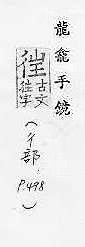 龍龕手鏡
古文
徃字
(彳部,
P.498)